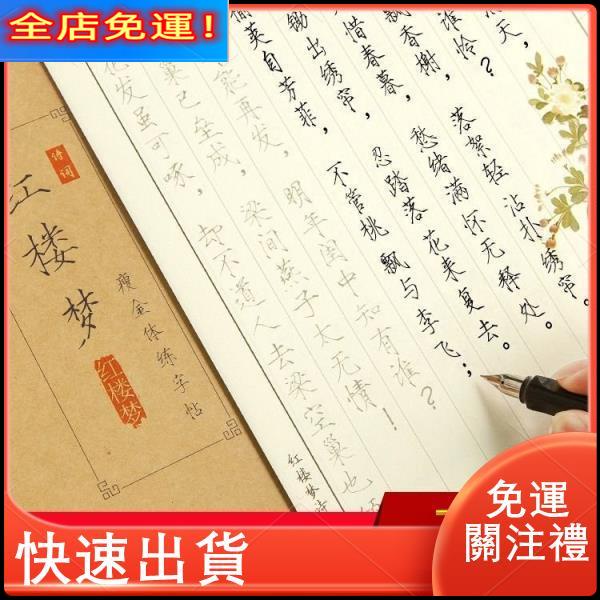 全店免運!
天，
谁怜？
飘香榭，落絮轻沾扑绣帘。
惜春暮，愁绪满怀无释处。
锄出绣帘，忍踏落花来复去。
荚自芳菲，不管桃飘与李飞；
能再发，明年闺中知有谁？
巢已垒成，梁间燕子太无情！
花发虽可啄，却不道人去梁空巢也
红楼梦诗
诗词
红楼梦
瘦金体练字帖
红楼梦
快速出貨
免運
關注禮